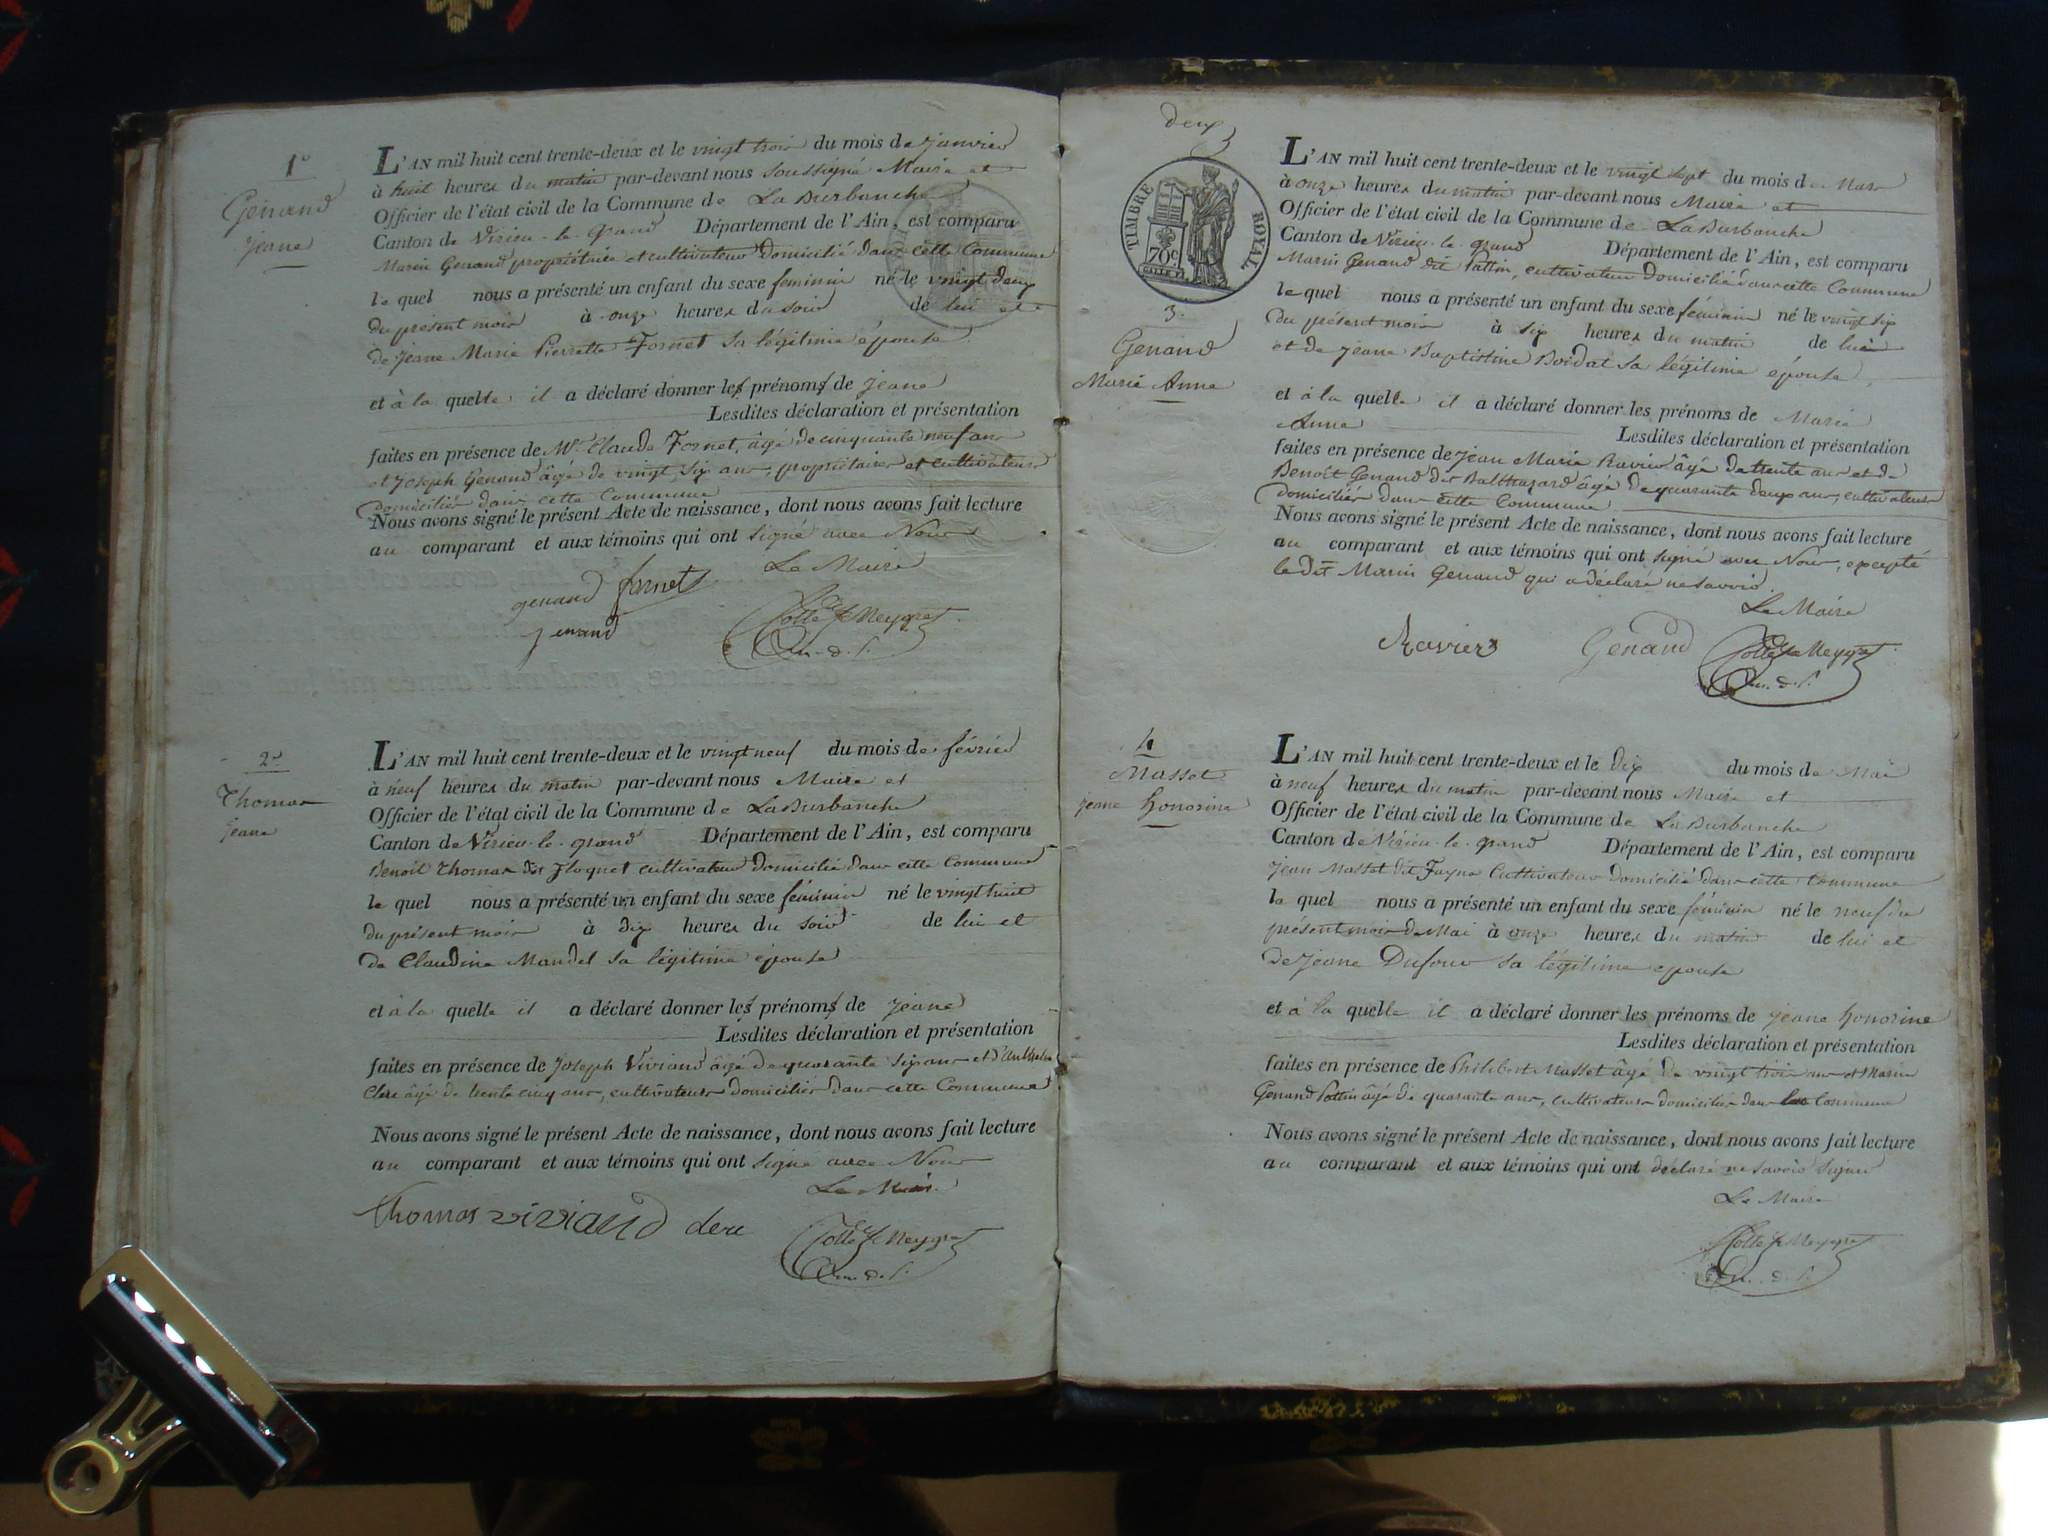 1º
Genand
jeane
L'AN mil huit cent trente-deux et le vingt trois du mois de janvier
à huit heures du matin par-devant nous soussigné Maire et
Officier de l'état civil de la Commune de La Burbanche
Canton de Virieu-le-grand Département de l'Ain, est comparu
Marin Genand propriétaire et cultivateur domicilié dans cette Commune
le quel nous a présenté un enfant du sexe feminin né le vingt deux
du présent mois à onze heures du soir de lui et
de jeane Marie Pierrette Fornet sa légitime épouse
et à la quelle il a déclaré donner les prénoms de jeane
Lesdites déclaration et présentation
faites en présence de Mr Claude Fornet, âgé de cinquante neuf ans
et joseph Genand âgé de vingt six ans, propriétaires et cultivateurs
domiciliés dans cette Commune
Nous avons signé le présent Acte de naissance, dont nous avons fait lecture
au comparant et aux témoins qui ont signé avec Nous
Le Maire
genand fornet
genand
2e
Thomas
jeane
L'AN mil huit cent trente-deux et le vingt neuf du mois de février
à neuf heures du matin par-devant nous Maire et
Officier de l'état civil de la Commune de La Burbanche
Canton de Virieu-le-grand Département de l'Ain, est comparu
Benoit Thomas dit Floquet cultivateur domicilié dans cette Commune
le quel nous a présenté un enfant du sexe féminin né le vingt huit
du présent mois à dix heures du soir de lui et
de Claudine Mandel sa légitime épouse
et à la quelle il a déclaré donner les prénoms de jeane
Lesdites déclaration et présentation
faites en présence de Joseph Viviand âgé de quarante six ans et d'Anthelme
Clerc âgé de trente cinq ans, cultivateurs domiciliés dans cette Commune
Nous avons signé le présent Acte de naissance, dont nous avons fait lecture
au comparant et aux témoins qui ont signé avec Nous
Le Maire
Thomas viviand clerc
deux
TIMBRE ROYAL
70c
3.
Genand
Marie Anne
L'AN mil huit cent trente-deux et le vingt sept du mois de Mars
à onze heures du matin par-devant nous Maire et
Officier de l'état civil de la Commune de La Burbanche
Canton de Virieu-le-grand Département de l'Ain, est comparu
Marin Genand dit Pattin, cultivateur domicilié dans cette Commune
le quel nous a présenté un enfant du sexe féminin né le vingt six
du présent mois à six heures du matin de lui
et de jeane Baptistine Boidat sa légitime épouse
et à la quelle il a déclaré donner les prénoms de Marie
Anne
Lesdites déclaration et présentation
faites en présence de jean Marie Ravier âgé de trente ans et de
Benoît Genand dit Balthazard âgé de quarante deux ans, cultivateurs
domiciliés dans cette Commune
Nous avons signé le présent Acte de naissance, dont nous avons fait lecture
au comparant et aux témoins qui ont signé avec Nous, excepté
le dit Marin Genand qui a déclaré ne savoir
Le Maire
Ravier Genand
4
Masset
jeane honorine
L'AN mil huit cent trente-deux et le dix du mois de Mai
à neuf heures du matin par-devant nous Maire et
Officier de l'état civil de la Commune de La Burbanche
Canton de Virieu-le-grand Département de l'Ain, est comparu
jean Masset dit Cultivateur domicilié dans cette Commune
le quel nous a présenté un enfant du sexe féminin né le neuf du
présent mois de Mai à onze heures du matin de lui et
de jeane Dufour sa légitime epouse
et à la quelle il a déclaré donner les prénoms de jeane honorine
Lesdites déclaration et présentation
faites en présence de Philibert Masset âgé de vingt trois ans et Marin
Genand Pattin âgé de quarante ans, cultivateurs domiciliés dans Commune
Nous avons signé le présent Acte de naissance, dont nous avons fait lecture
au comparant et aux témoins qui ont déclaré ne savoir signer
Le Maire